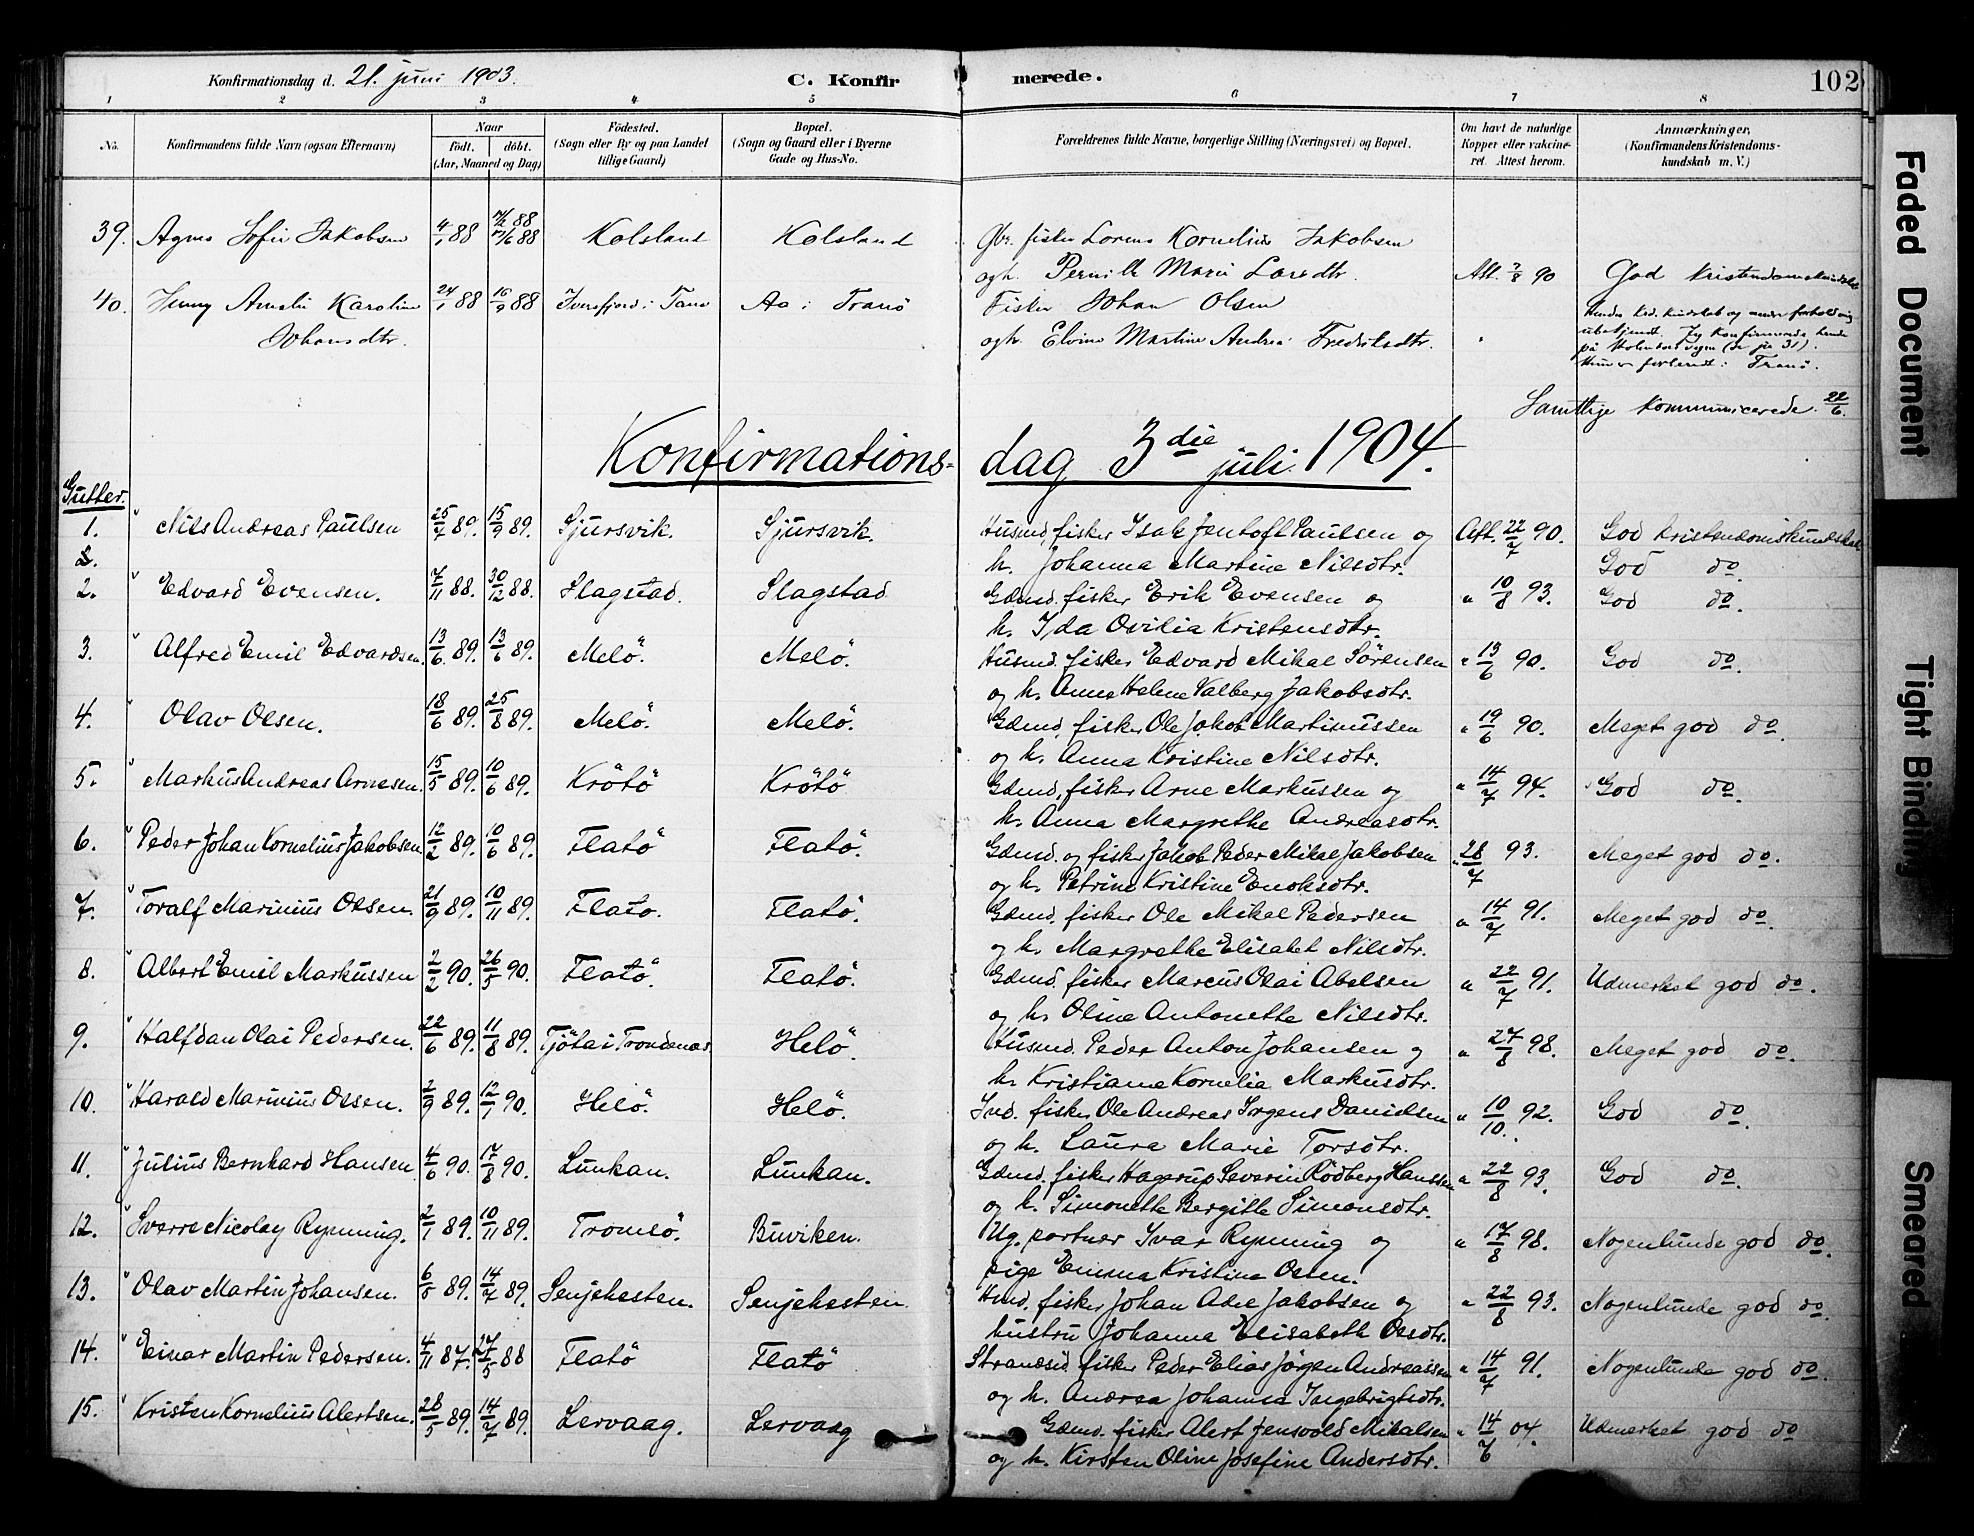 Konfirmationsdag d. 21. juni 1903. C. Konfir merede. 102
1 2 3 4 5 6 7 8
No. Konfirmandens fulde Navn (ogsaa Efternavn) Naar født. døbt. (Aar, Maaned og Dag) Fødested. (Sogn eller By og paa Landet tillige Gaard) Bopæl. (Sogn og Gaard eller i Byerne Gade og Hus-No. Forældrenes fulde Navne, borgerlige Stilling (Næringsvei) og Bopæl. Om havt de naturlige Kopper eller vakcineret. Attest herom. Anmærkninger. (Konfirmandens Kristendomskundskab m. V.)
39. Agnes Sofie Jakobsen 4/1 88 88 /6 88 Kolsland Kolsland Gbr. fisker Lorens Kornelius Jakobsen
og h. Pernille Marie Larsdtr. Att. 7/8 90 God Kristendomskundskab
40. Jenny Amalie Karoline 24/1 88 16/9 88 i Tanø Aa i Tranö Fisker Johan Olsen
Johansdtr. og h. Elvine Martine Andrea Fredriksdtr.
ubekjendt. Jeg konfirmerede hende
Tranö.
Samtlige kommunicerede 22/6.
Konfirmations- dag 3die juli 1904.
Gutter.
1. Nils Andreas Paulsen 25/7 89. 15/9 89. Sjursvik. Sjursvik. Husmd, fisker Isak Jentoft Paulsen og Att. 22/7 90. God Kristendomskundskab
2. h. Johanna Martine Nilsdtr. God do.
2. " Edvard Evensen. 7/11 88. 30/12 88. Slagstad. Slagstad Gdmd. fisker Erik Evensen og " 10/8 93. God do.
h. Ida Ovilia Kristensdtr.
3. " Alfred Emil Edvardsen. 13/6 89. 13/6 89. Melö. Melö. Husmd. fisker Edvard Mikal Sörensen " 13/6 90. God do.
og h. Anne Helene Valberg Jakobsdtr.
4. " Olav Olsen. 18/6 89. 25/8 89. Melö. Melö. Gdmd. fisker Ole Jakob Martinussen " 19/6 90. Meget god do.
og h. Anna Kristine Nilsdtr.
5. " Markus Andreas Arnesen. 15/5 89. 10/6 89. Krötö Krötö Gdmd, fisker Arne Markussen og " 14/7 94. God do.
h. Anna Margrethe Andreasdtr.
6. " Peder Johan Kornelius Jakobsen 12/2 89. 10/6 89. Flatö Flatö. Gdmd. og fisker Jakob Peder Mikal Jakobsen " 28/7 93. Meget god do.
og h. Petrine Kristine Enoksdtr.
7. " Toralf Marinius Olsen. 21/9 89. 10/11 89. Flatö. Flatö. Gdmd. fisker Ole Mikal Pedersen " 14/7 91. Meget god do.
og h. Margrethe Elisabet Nilsdtr.
8. " Albert Emil Markussen 2/2 90. 26/5 90. Flatö. Flatö. Gdmd. fisker Marcus Olai Abelsen " 22/7 91. Udmerket god do.
og h. Oline Antonette Nilsdtr.
9. " Halfdan Olai Pedersen. 22/6 89. 11/8 89. Tjöta i Trondenæs Helö. Husmd. Peder Anton Johansen og " 27/8 98. Meget god do.
h. Kristiane Kornelia Markusdtr.
10. " Harald Marinius Olsen. 2/9 89. 12/1 90. Helö. Helö. Ind. fisker Ole Andreas Irgens Danielsen " 10/10. 92. God do.
og h. Laura Marie Torsdtr.
11. " Julius Bernhard Hansen 4/6 90. 17/8 90. Lunkan. Lunkan. Gdmd. fisker Hagerup Severin Rödberg Hanssen " 22/8 93. God do.
og h. Simonette Bergitte Simonsdtr.
12. " Sverre Nicolay Rynning. 2/1 89. 10/11 89. Tromsö. Buviken. Ug. portner Ivar Rynning og " 17/8 98. Nogenlunde god do.
pige Emma Kristine Olsen.
13. " Olav Martin Johansen. 6/5 89. 14/7 89. Senjehesten. Senjehesten. Hmd. fisker Johan Adel Jakobsen og " 22/8 93. Nogenlunde god do
hustru Johanna Elisabeth Olsdtr.
14. " Einar Martin Pedersen. 4/11 87. 27/5 88 Flatö Flatö Strandsid. fisker Peder Elias Jörgen Andreassen " 14/7 91. Nogenlunde god do.
og h. Andrea Johanna Ingebrigtsdtr.
15. " Kristen Kornelius Alertsen. 28/5 89. 14/7 89. Lervaag. Lervaag Gdmd. fisker Alert Jensvold Mikalsen " 14/6 04. Udmerket god do
og h. Kirsten Oline Josefine Andersdtr.
Faded Document
Tight Binding
Smeared